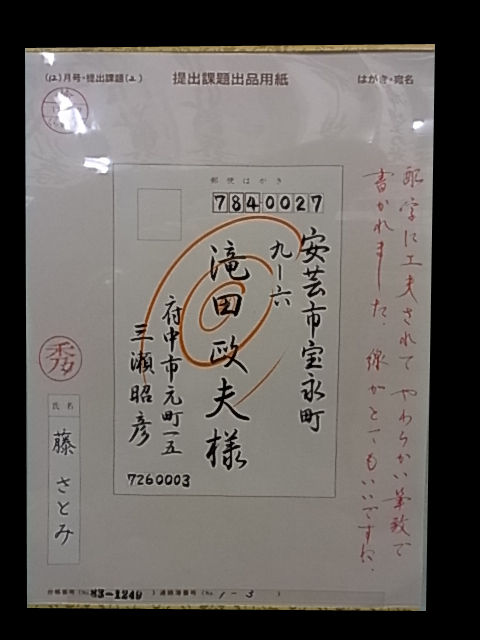 (12)月号・提出課題(2)
提出課題出品用紙
はがき・宛名
配字に工夫されて やわらかい筆致で
書かれました。線がとてもいいですね。
郵便はがき
7840027
安芸市宝永町
九ー六
滝田政夫様
府中市元町一五
三瀬昭彦
7260003
秀
氏名
藤 さとみ
合格番号(No.83-1249) 連絡簿番号(No. 1-3 )